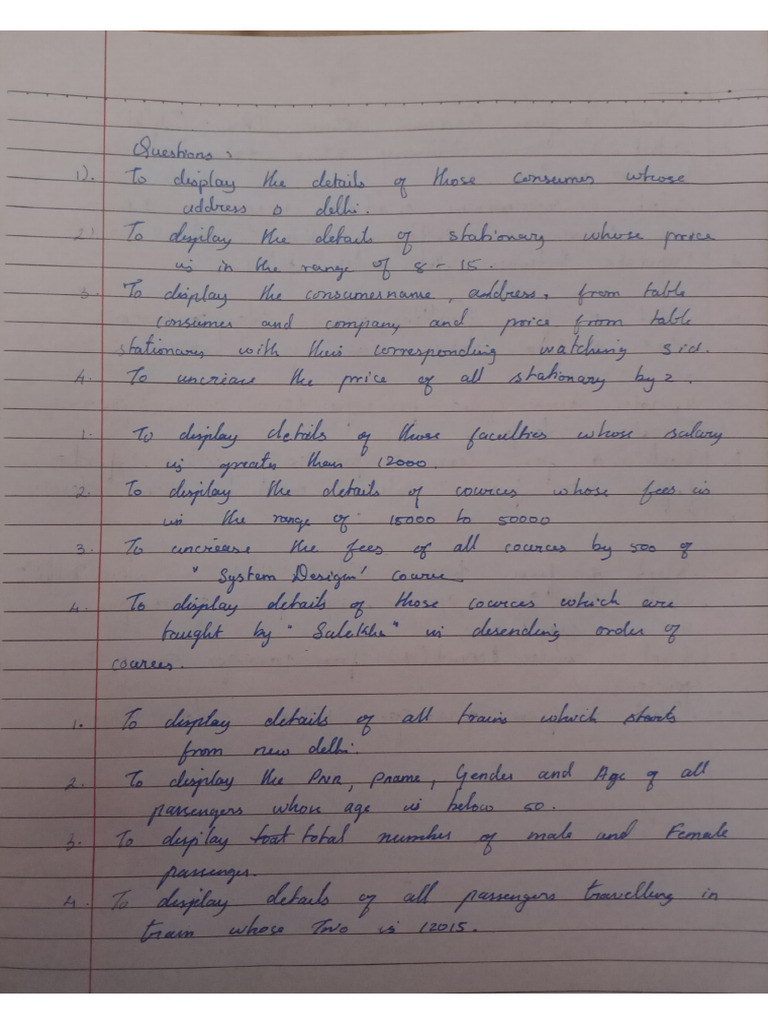 Questions :
1). To display the details of those consumer whose
address is delhi.
2) To display the details of stationary whose price
is in the range of 8 - 15.
3. To display the consumername, address, from table
consumer and company and price from table
stationary with their corresponding matching s id.
4. To increase the price of all stationary by 2.
1. To display details of those faculties whose salary
is greater than 12000.
2. To display the details of cources whose fees is
in the range of 15000 to 50000
3. To increase the fees of all cources by 500 of
"System Design" course
4. To display details of those cources which are
taught by "Sulekha" in desending order of
cources.
1. To display details of all trains which starts
from new delhi.
2. To display the PNR, Pname, Gender and Age of all
passengers whose age is below 50.
3. To display total number of male and Female
passenger.
4. To display details of all passengers travelling in
train whose Tno is 12015.